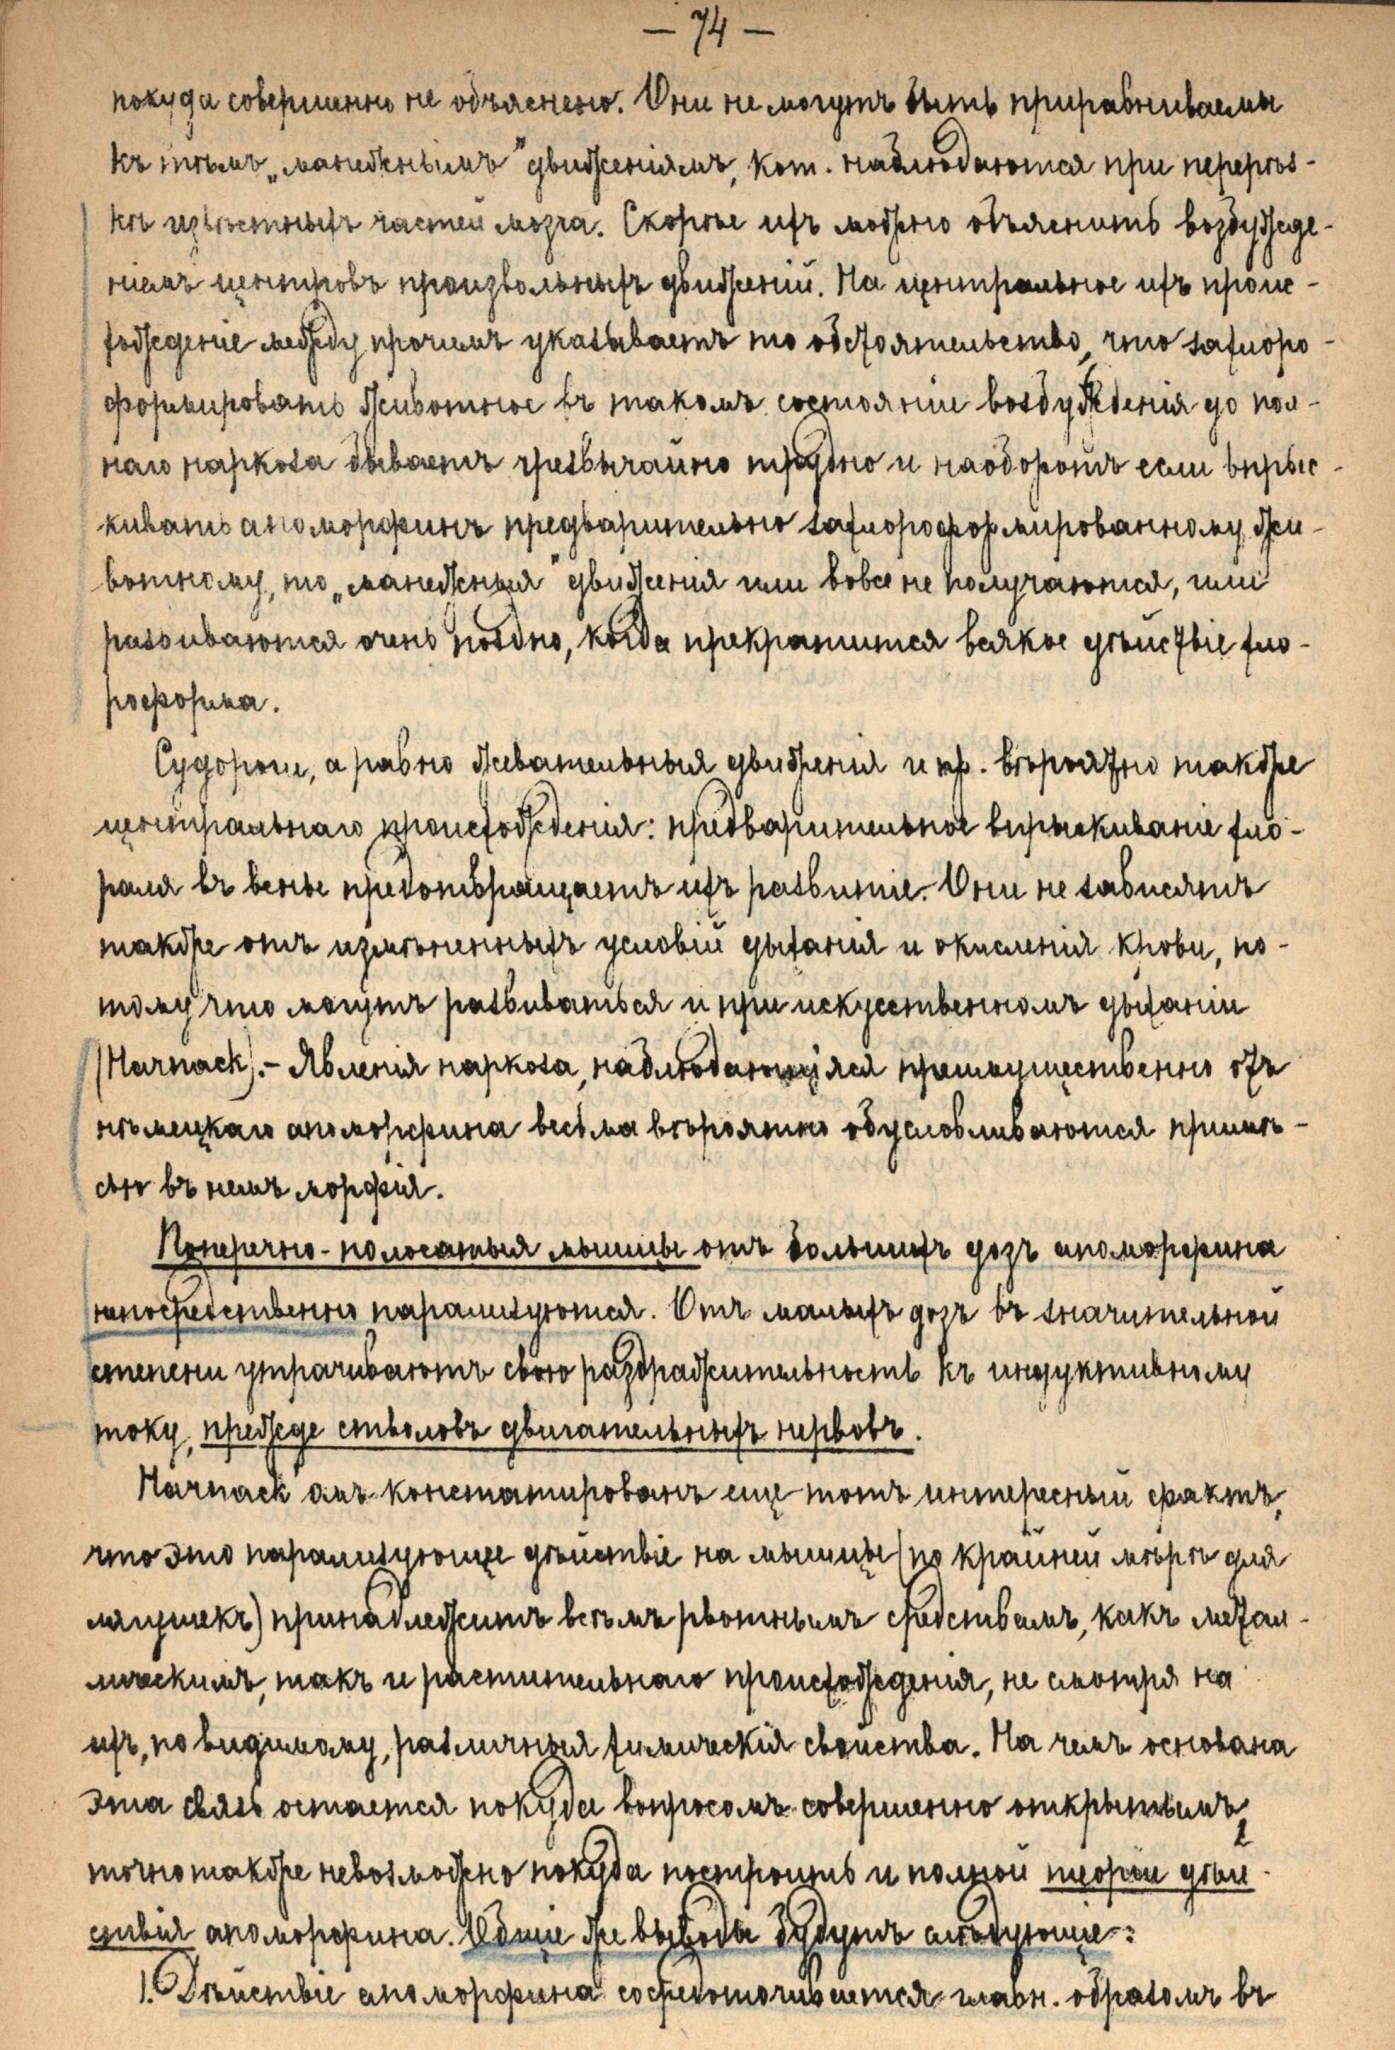 — 74 —
покуда совершенно не объяснено. Они не могутъ быть приравниваемы
къ тѣмъ „манежнымъ" движеніямъ, кот. наблюдаются при перерѣз-
кѣ извѣстныхъ частей мозга. Скорѣе ихъ можно объяснить возбужде-
ніемъ центровъ произвольныхъ движеній. На центральное ихъ проис-
хожденіе между прочимъ указываетъ то обстоятельство, что захлоро-
формировать животное въ такомъ состояніи возбужденія до пол-
наго наркоза бываетъ чрезвычайно трудно и наоборотъ если впрыс-
кивать апоморфинъ предварительно захлороформированному жи-
вотному, то „манежныя" движенія или вовсе не получаются, или
развиваются очень поздно, когда прекратится всякое дѣйствіе хло-
роформа.
Судороги, а равно жевательныя движенія и пр. вѣроятно также
центральнаго происхожденія: предварительное впрыскиваніе хло-
рала въ вены предотвращаетъ ихъ развитіе. Они не зависятъ
также отъ измѣненныхъ условій дыханія и окисленія крови, по-
тому что могутъ развиваться и при искусственномъ дыханіи
(Harnack).– Явленія наркоза, наблюдающіяся преимущественно отъ
нѣмецкаго апоморфина весьма вѣроятно обусловливаются примѣ-
сью въ немъ морфія.
Поперечно-полосатыя мышцы отъ большихъ дозъ апоморфина
непосредственно парализуются. Отъ малыхъ дозъ въ значительной
степени утрачиваютъ свою раздражительность къ индуктивному
току, прежде стволовъ двигательныхъ нервовъ.
Harnack'омъ констатированъ еще тотъ интересный фактъ,
что это парализующее дѣйствіе на мышцы (по крайней мѣрѣ для
лягушекъ) принадлежитъ всѣмъ рвотнымъ средствамъ, какъ метал-
лическимъ, такъ и растительнаго происхожденія, не смотря на
ихъ, по видимому, различныя химическія свойства. На чемъ основана
эта связь остается покуда вопросомъ совершенно открытымъ,
точно также невозможно покуда построить и полной теоріи дѣй-
ствія апоморфина. Общіе же выводы будутъ слѣдующіе:
1. Дѣйствіе апоморфина сосредоточивается главн. образомъ въ